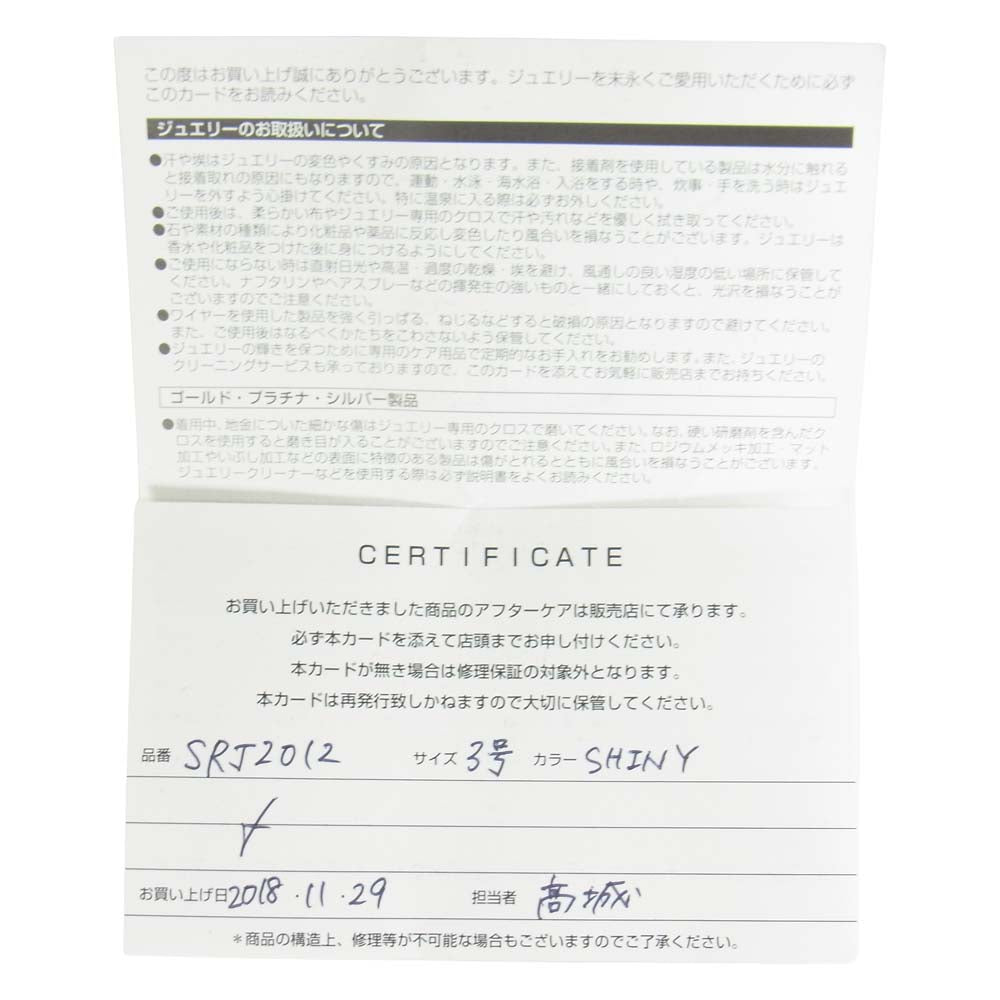 この度はお買い上げ誠にありがとうございます。ジュエリーを末永くご愛用いただくために必ず
このカードをお読みください。
ジュエリーのお取扱いについて
●汗や埃はジュエリーの変色やくすみの原因となります。また、接着剤を使用している製品は水分に触れる
と接着取れの原因にもなりますので、運動・水泳・海水浴・入浴をする時や、炊事・手を洗う時はジュエ
リーを外すよう心掛けてください。特に温泉に入る際は必ずお外しください。
●ご使用後は、柔らかい布やジュエリー専用のクロスで汗や汚れなどを優しく拭き取ってください。
●石や素材の種類により化粧品や薬品に反応し変色したり風合いを損なうことがございます。ジュエリーは
香水や化粧品をつけた後に身につけるようにしてください。
●ご使用にならない時は直射日光や高温・過度の乾燥・埃を避け、風通しの良い湿度の低い場所に保管して
ください。ナフタリンやヘアスプレーなどの揮発生の強いものと一緒にしておくと、光沢を損なうことが
ございますのでご注意ください。
●ワイヤーを使用した製品を強く引っぱる、ねじるなどすると破損の原因となりますので避けてください。
また、ご使用後はなるべくかたちをこわさないよう保管してください。
●ジュエリーの輝きを保つために専用のケア用品で定期的なお手入れをお勧めします。また、ジュエリーの
クリーニングサービスも承っておりますので、このカードを添えてお気軽に販売店までお持ちください。
ゴールド・プラチナ・シルバー製品
●着用中、地金についた細かな傷はジュエリー専用のクロスで磨いてください。なお、硬い研磨剤を含んだク
ロスを使用すると磨き目が入ることがございますのでご注意ください。また、ロジウムメッキ加工・マット
加工やいぶし加工などの表面に特徴のある製品は傷がとれるとともに風合いを損なうことがございます。
ジュエリークリーナーなどを使用する際は必ず説明書をよくお読みください。
CERTIFICATE
お買い上げいただきました商品のアフターケアは販売店にて承ります。
必ず本カードを添えて店頭までお申し付けください。
本カードが無き場合は修理保証の対象外となります。
本カードは再発行致しかねますので大切に保管してください。
品番 SRJ2012 サイズ 3号 カラー SHINY
お買い上げ日 2018.11.29 担当者 髙城
*商品の構造上、修理等が不可能な場合もございますのでご了承ください。